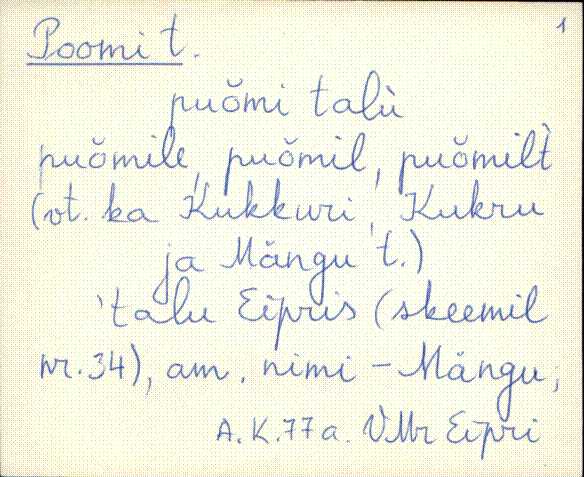 1
Poomi t.
puŏmi talù
puŏmile, puŏmil, puŏmilt̀
(vt. ka Kukkuri, Kukru
ja Mängu t.)
'talu Eipris (skeemil
nr. 34), am. nimi - Mängu;
A.K. 77 a. VMr Eipri